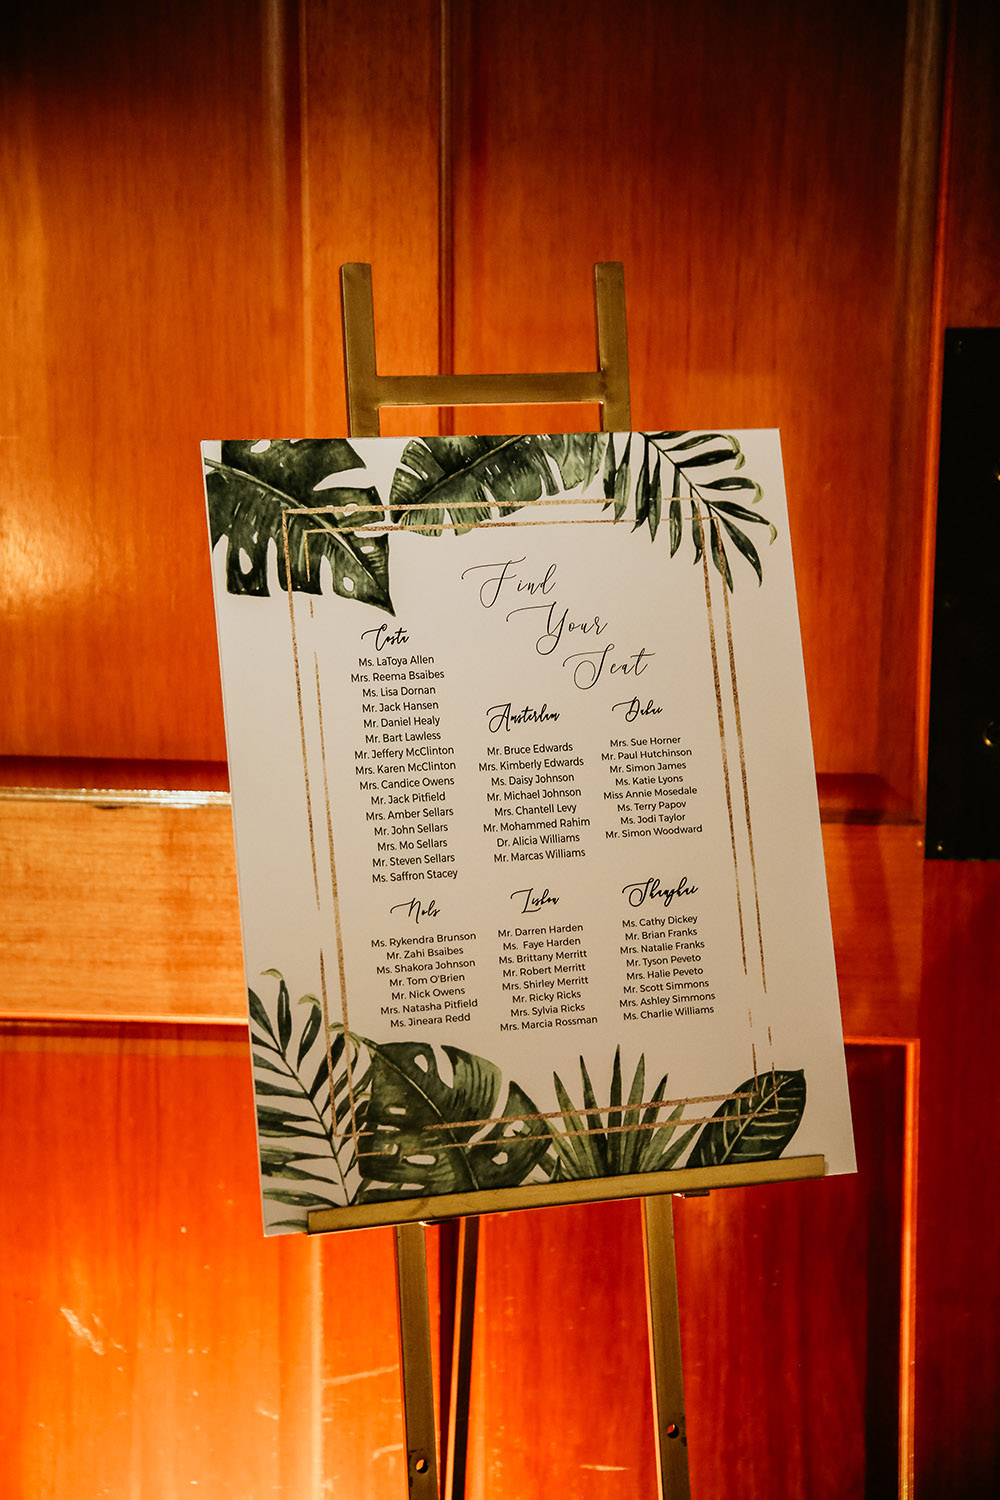 Find
Your
Seat
Costa
Ms. LaToya Allen
Mrs. Reema Bsaibes
Ms. Lisa Dornan
Mr. Jack Hansen
Mr. Daniel Healy
Mr. Bart Lawless
Mr. Jeffery McClinton
Mrs. Karen McClinton
Mrs. Candice Owens
Mr. Jack Pitfield
Mrs. Amber Sellars
Mr. John Sellars
Mrs. Mo Sellars
Mr. Steven Sellars
Ms. Saffron Stacey
Amsterdam
Mr. Bruce Edwards
Mrs. Kimberly Edwards
Ms. Daisy Johnson
Mr. Michael Johnson
Mrs. Chantell Levy
Mr. Mohammed Rahim
Dr. Alicia Williams
Mr. Marcas Williams
Dubai
Mrs. Sue Horner
Mr. Paul Hutchinson
Mr. Simon James
Ms. Katie Lyons
Miss Annie Mosedale
Ms. Terry Papov
Ms. Jodi Taylor
Mr. Simon Woodward
Ms. Rykendra Brunson
Mr. Zahi Bsaibes
Ms. Shakora Johnson
Mr. Tom O'Brien
Mr. Nick Owens
Mrs. Natasha Pitfield
Ms. Jineara Redd
Lisbon
Mr. Darren Harden
Ms. Faye Harden
Ms. Brittany Merritt
Mr. Robert Merritt
Mrs. Shirley Merritt
Mr. Ricky Ricks
Mrs. Sylvia Ricks
Mrs. Marcia Rossman
Shanghai
Ms. Cathy Dickey
Mr. Brian Franks
Mrs. Natalie Franks
Mr. Tyson Peveto
Mrs. Halie Peveto
Mr. Scott Simmons
Mrs. Ashley Simmons
Ms. Charlie Williams